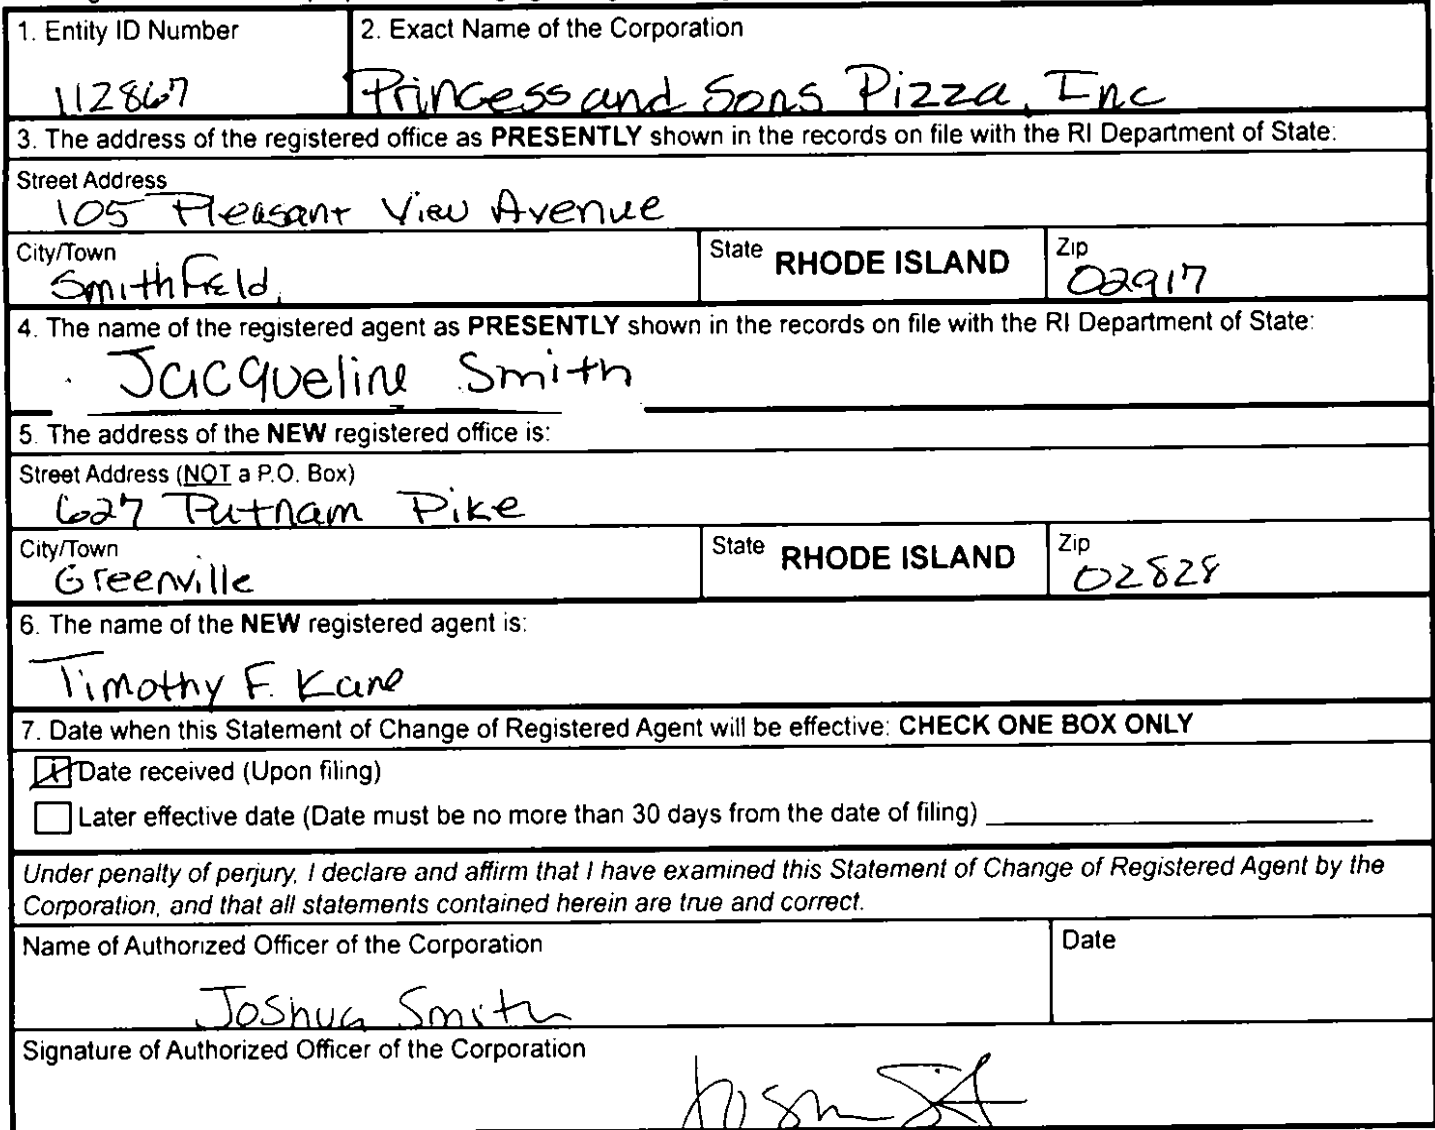 1. Entity ID Number
112867
2. Exact Name of the Corporation
Princess and Sons Pizza, Inc
3. The address of the registered office as PRESENTLY shown in the records on file with the RI Department of State:
Street Address
105 Pleasant View Avenue
City/Town
Smithfield,
State RHODE ISLAND
Zip
02917
4. The name of the registered agent as PRESENTLY shown in the records on file with the RI Department of State:
Jacqueline Smith
5. The address of the NEW registered office is:
Street Address (NOT a P.O. Box)
627 Putnam Pike
City/Town
Greenville
State RHODE ISLAND
Zip
02828
6. The name of the NEW registered agent is:
Timothy F. Kane
7. Date when this Statement of Change of Registered Agent will be effective: CHECK ONE BOX ONLY
Date received (Upon filing)
Later effective date (Date must be no more than 30 days from the date of filing)
Under penalty of perjury, I declare and affirm that I have examined this Statement of Change of Registered Agent by the
Corporation, and that all statements contained herein are true and correct.
Name of Authorized Officer of the Corporation
Joshua Smith
Date
Signature of Authorized Officer of the Corporation